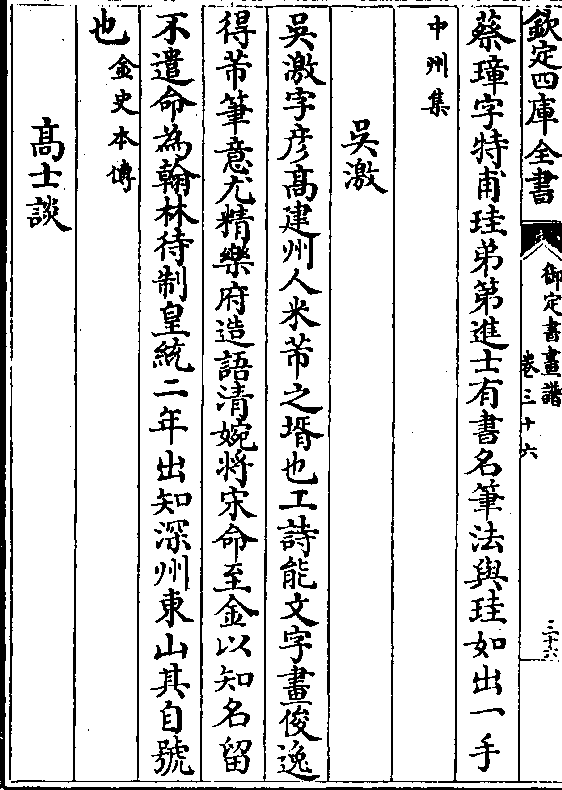 欽定四庫全書
御定書畫譜
卷三十六
三十六
蔡璋字特甫珪弟第進士有書名筆法與珪如出一手
中州集
吳激
吳激字彥髙建州人米芾之壻也工詩能文字畫俊逸
得芾筆意尤精樂府造語清婉將宋命至金以知名留
不遣命為翰林待制皇統二年出知深州東山其自號
也金史本傳
髙士談